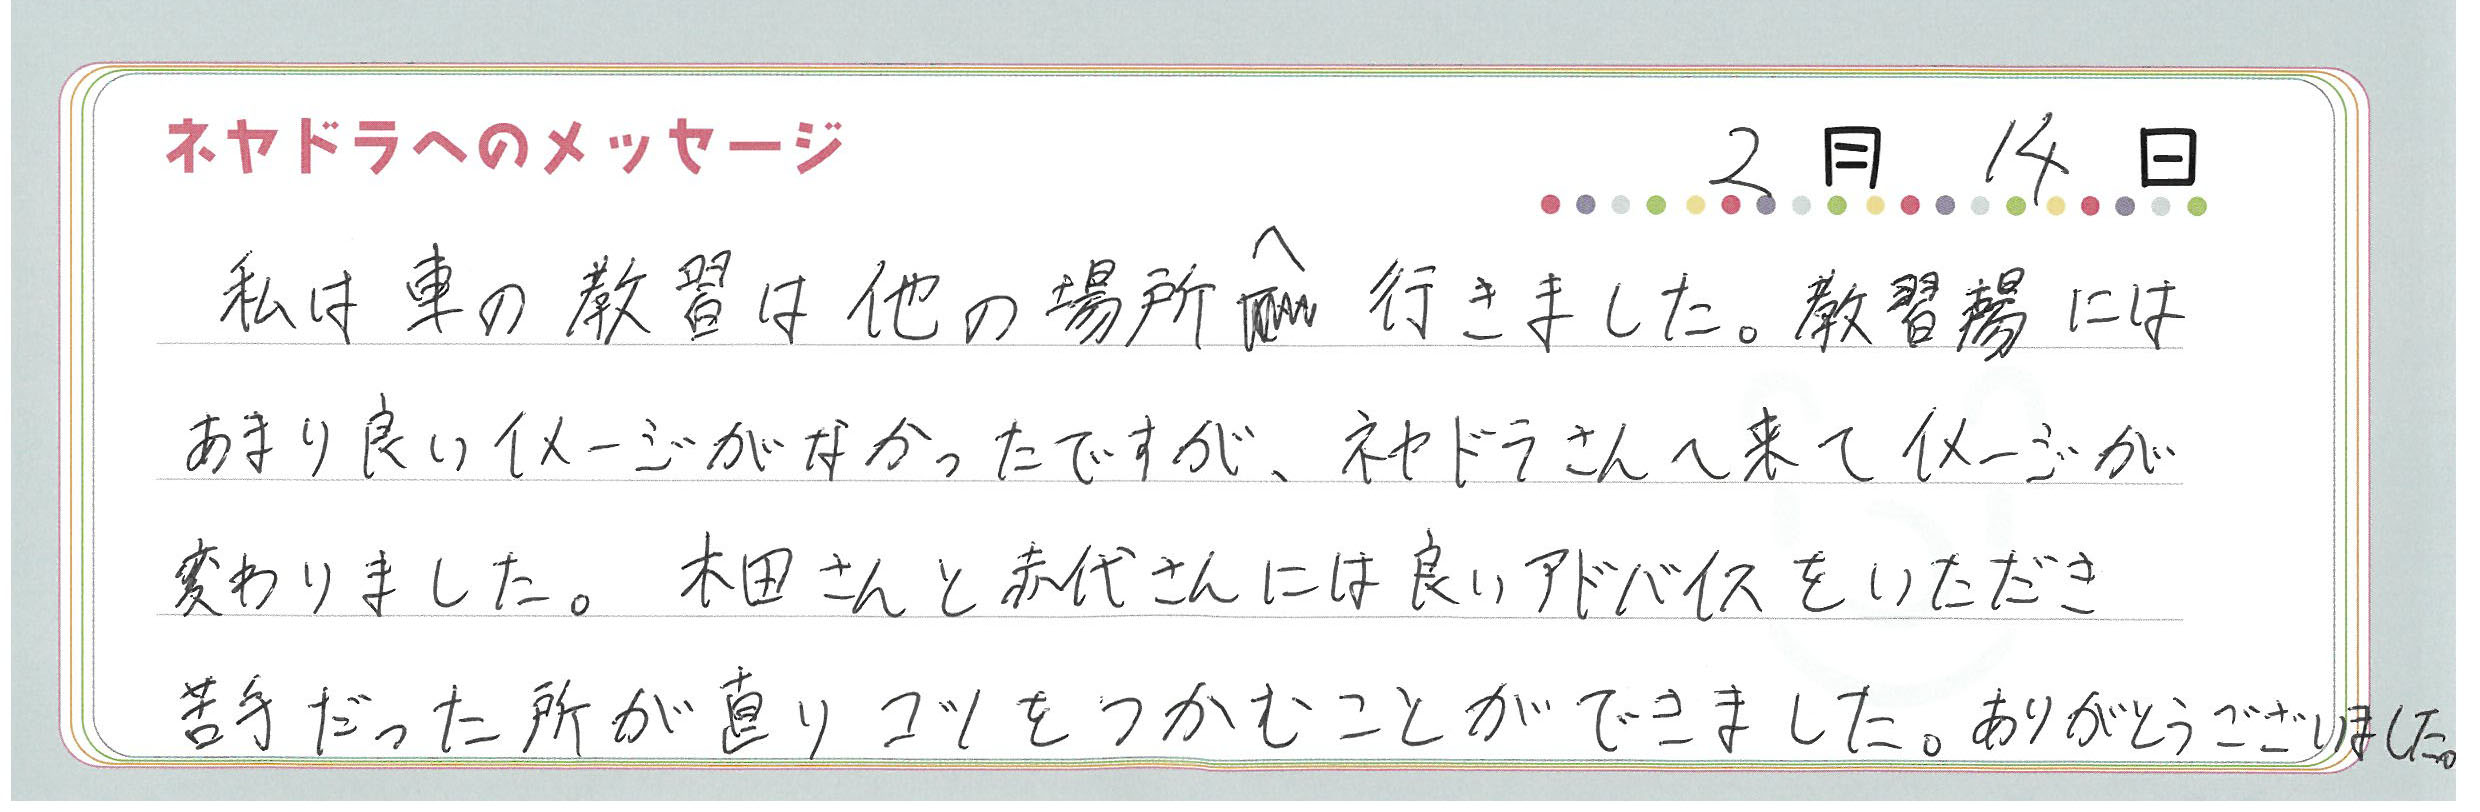 ネヤドラへのメッセージ
2月 14日
私は車の教習は他の場所へ行きました。教習場には
あまり良いイメージがなかったですが、ネヤドラさんへ来てイメージが
変わりました。 木田さんと赤代さんには良いアドバイスをいただき
苦手だった所が直りコツをつかむことができました。ありがとうございました。